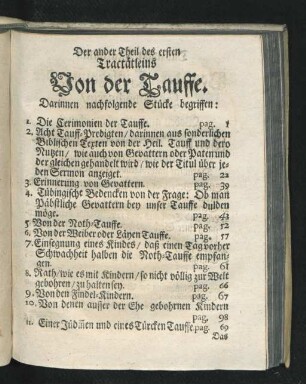 Der ander Theil des ersten
Tractätleins
Von der Tauffe.
Darinnen nachfolgende Stücke begriffen:
1. Die Cerimonien der Tauffe. pag. 1
2. Acht Tauff-Predigten / darinnen aus sonderlichen
Biblischen Texten von der Heil. Tauff und dero
Nutzen / wie auch von Gevattern oder Paten und
der gleichen gehandelt wird / wie der Titul über je-
den Sermon anzeiget. pag. 22
3. Erinnerung von Gevattern. pag. 39
4. Tübingische Bedencken von der Frage: Ob man
Päbstliche Gevattern bey unser Tauffe dulden
möge. pag. 41
5. Von der Noth-Tauffe. pag. 12
6. Von der Weiber oder Läyen Tauffe. pag. 57
7. Einsegnung eines Kindes / daß einen Tag vorher
Schwachheit halben die Noth-Tauffe empfan-
gen. pag. 61
8. Rath / wie es mit Kindern / so nicht völlig zur Welt
gebohren / zu halten sey. pag. 66
9. Von den Findel-Kindern. pag. 67
10. Von denen ausser der Ehe gebohrnen Kindern
pag. 98
11. Einer Jüdin und eines Türcken Tauffe. pag. 69
Das